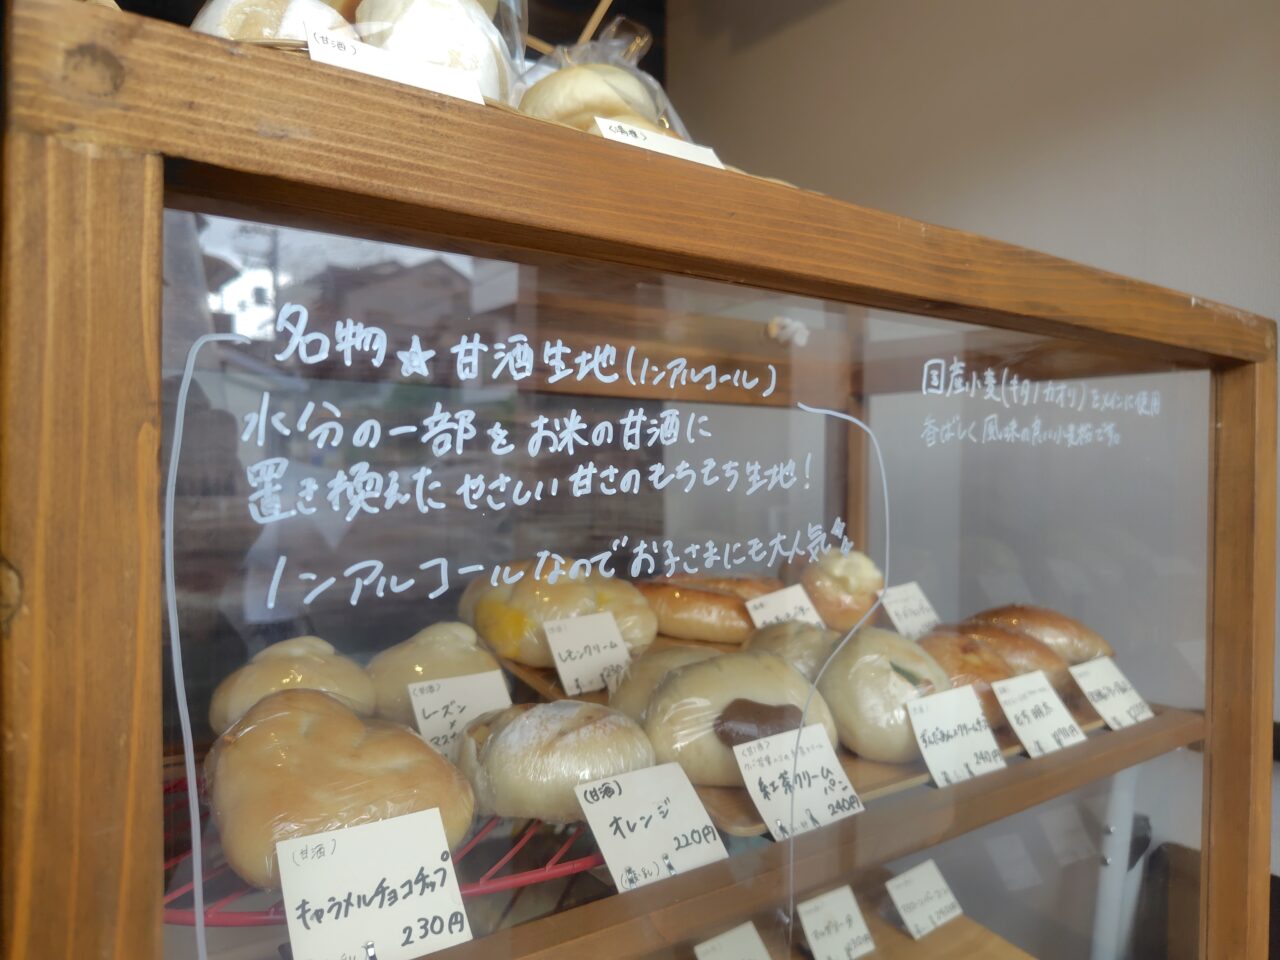 (甘酒)
(湯種)
名物☆甘酒生地(ノンアルコール)
水分の一部をお米の甘酒に
置き換えたやさしい甘さのもちもち生地!
ノンアルコールなのでお子さまにも大人気
国産小麦(キタノカオリ)をメインに使用
香ばしく風味の良い小麦粉です。
レモンクリーム
230
(甘酒)
レーズン
×
(甘酒)
紅茶クリーム
パン
240円
ずんだあん×クリームチーズ
240円
(甘酒)
オレンジ
220円
(甘酒)
キャラメルチョコチップ
230円